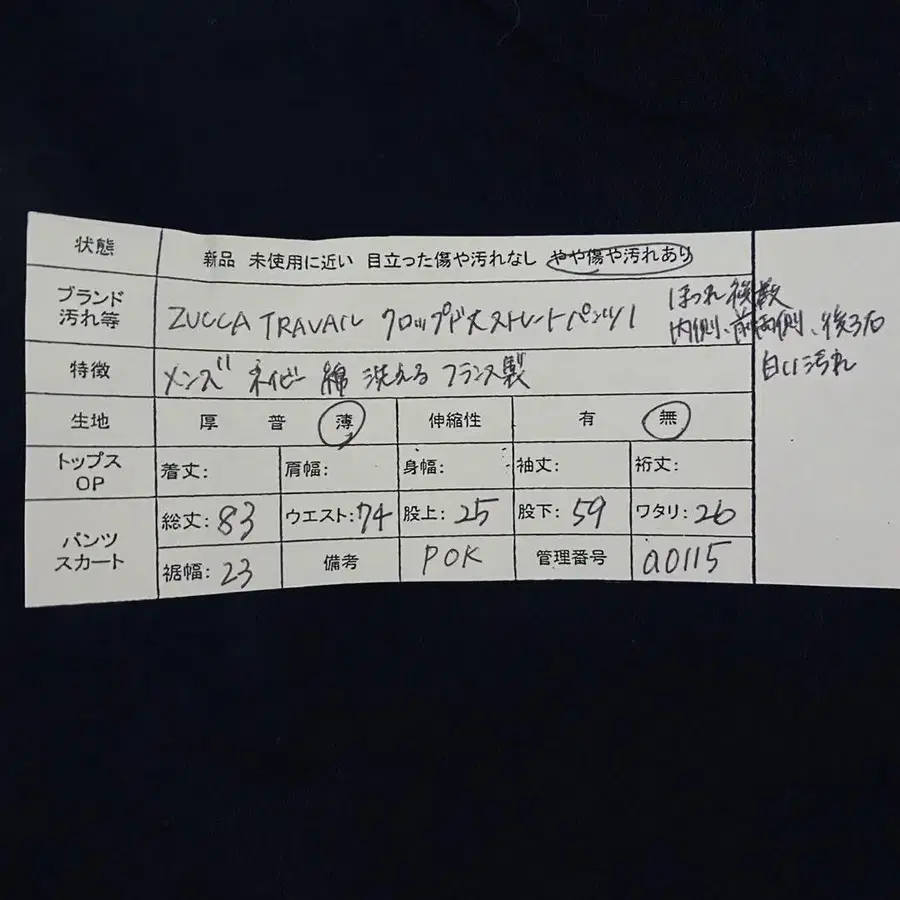 状態 新品 未使用に近い 目立った傷や汚れなし やや傷や汚れあり
ブランド
汚れ等
ZUCCA TRAVAIL クロップド丈ストレートパンツ
ほつれ複数
内側、前両側、後ろ右
白い汚れ
特徴 メンズ ネイビー 綿 洗える フランス製
生地 厚 普 薄 伸縮性 有 無
トップス
OP
着丈: 肩幅: 身幅: 袖丈: 裄丈:
パンツ
スカート
総丈:83 ウエスト:74 股上:25 股下:59 ワタリ:26
裾幅:23 備考 POK 管理番号 a0115